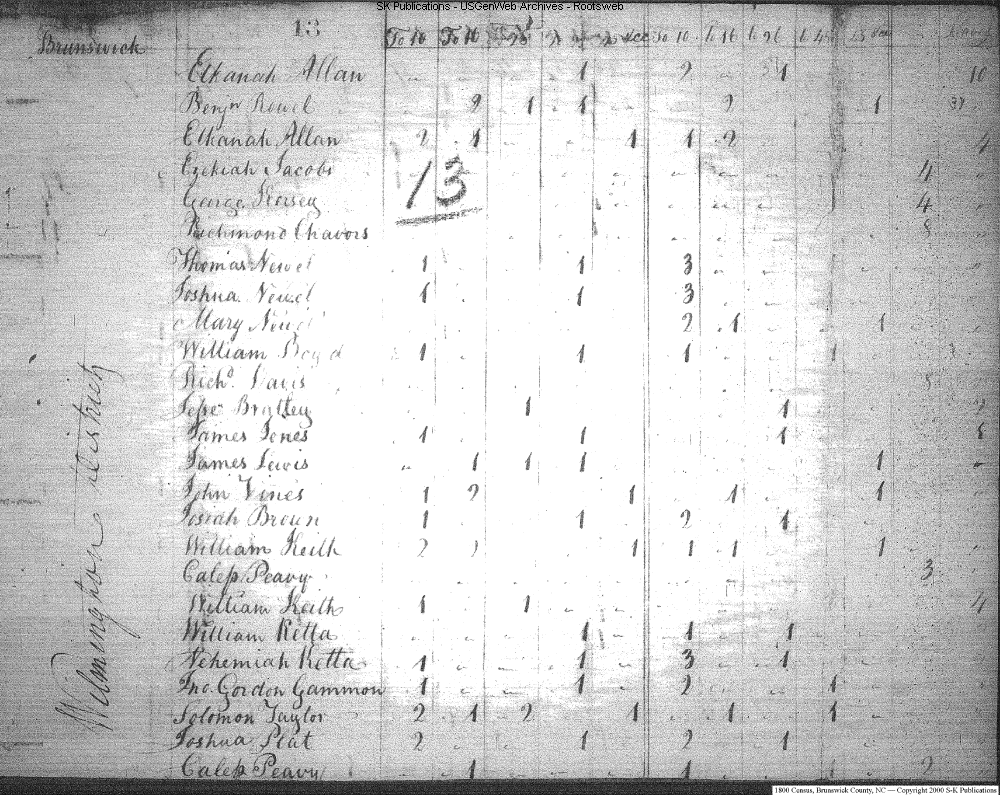 SK Publications - USGenWeb Archives - Rootsweb
13
Brunswick To 10 To 16 26 to 10 to 16 to 26 to 45
Elkanah Allan 1 2 1 10
Benjn 2 1 1 2 1
Elkanah Allan 2 1 1 1 2 4
Ezekiah Jacobs 4
13
George 4
Richmond Chavors 8
Thomas Newel 1 1 3
Joshua Newel 1 1 3
Mary Newel 2 1 1
William Boyd 1 1 1 1
Richd. Davis
Jesse 1 1 2
James Jones 1 1 1
James Lewis 1 1 1 1
John Vines 1 2 1 1 1
Josiah Broun 1 1 2 1
William Keith 2 1 1 1 1
Caleb Peavy 3
William Keith 1 1 4
William Retta 1 1 1
Nehemiah Retta 1 1 3 1
Jno. Gordon Gammon 1 1 2 1
Solomon Taylor 2 1 2 1 1 1
Joshua Plat 2 1 2 1
Caleb Peavy 1 1 1 2
Wilmington District
1800 Census, Brunswick County, NC — Copyright 2000 S-K Publications